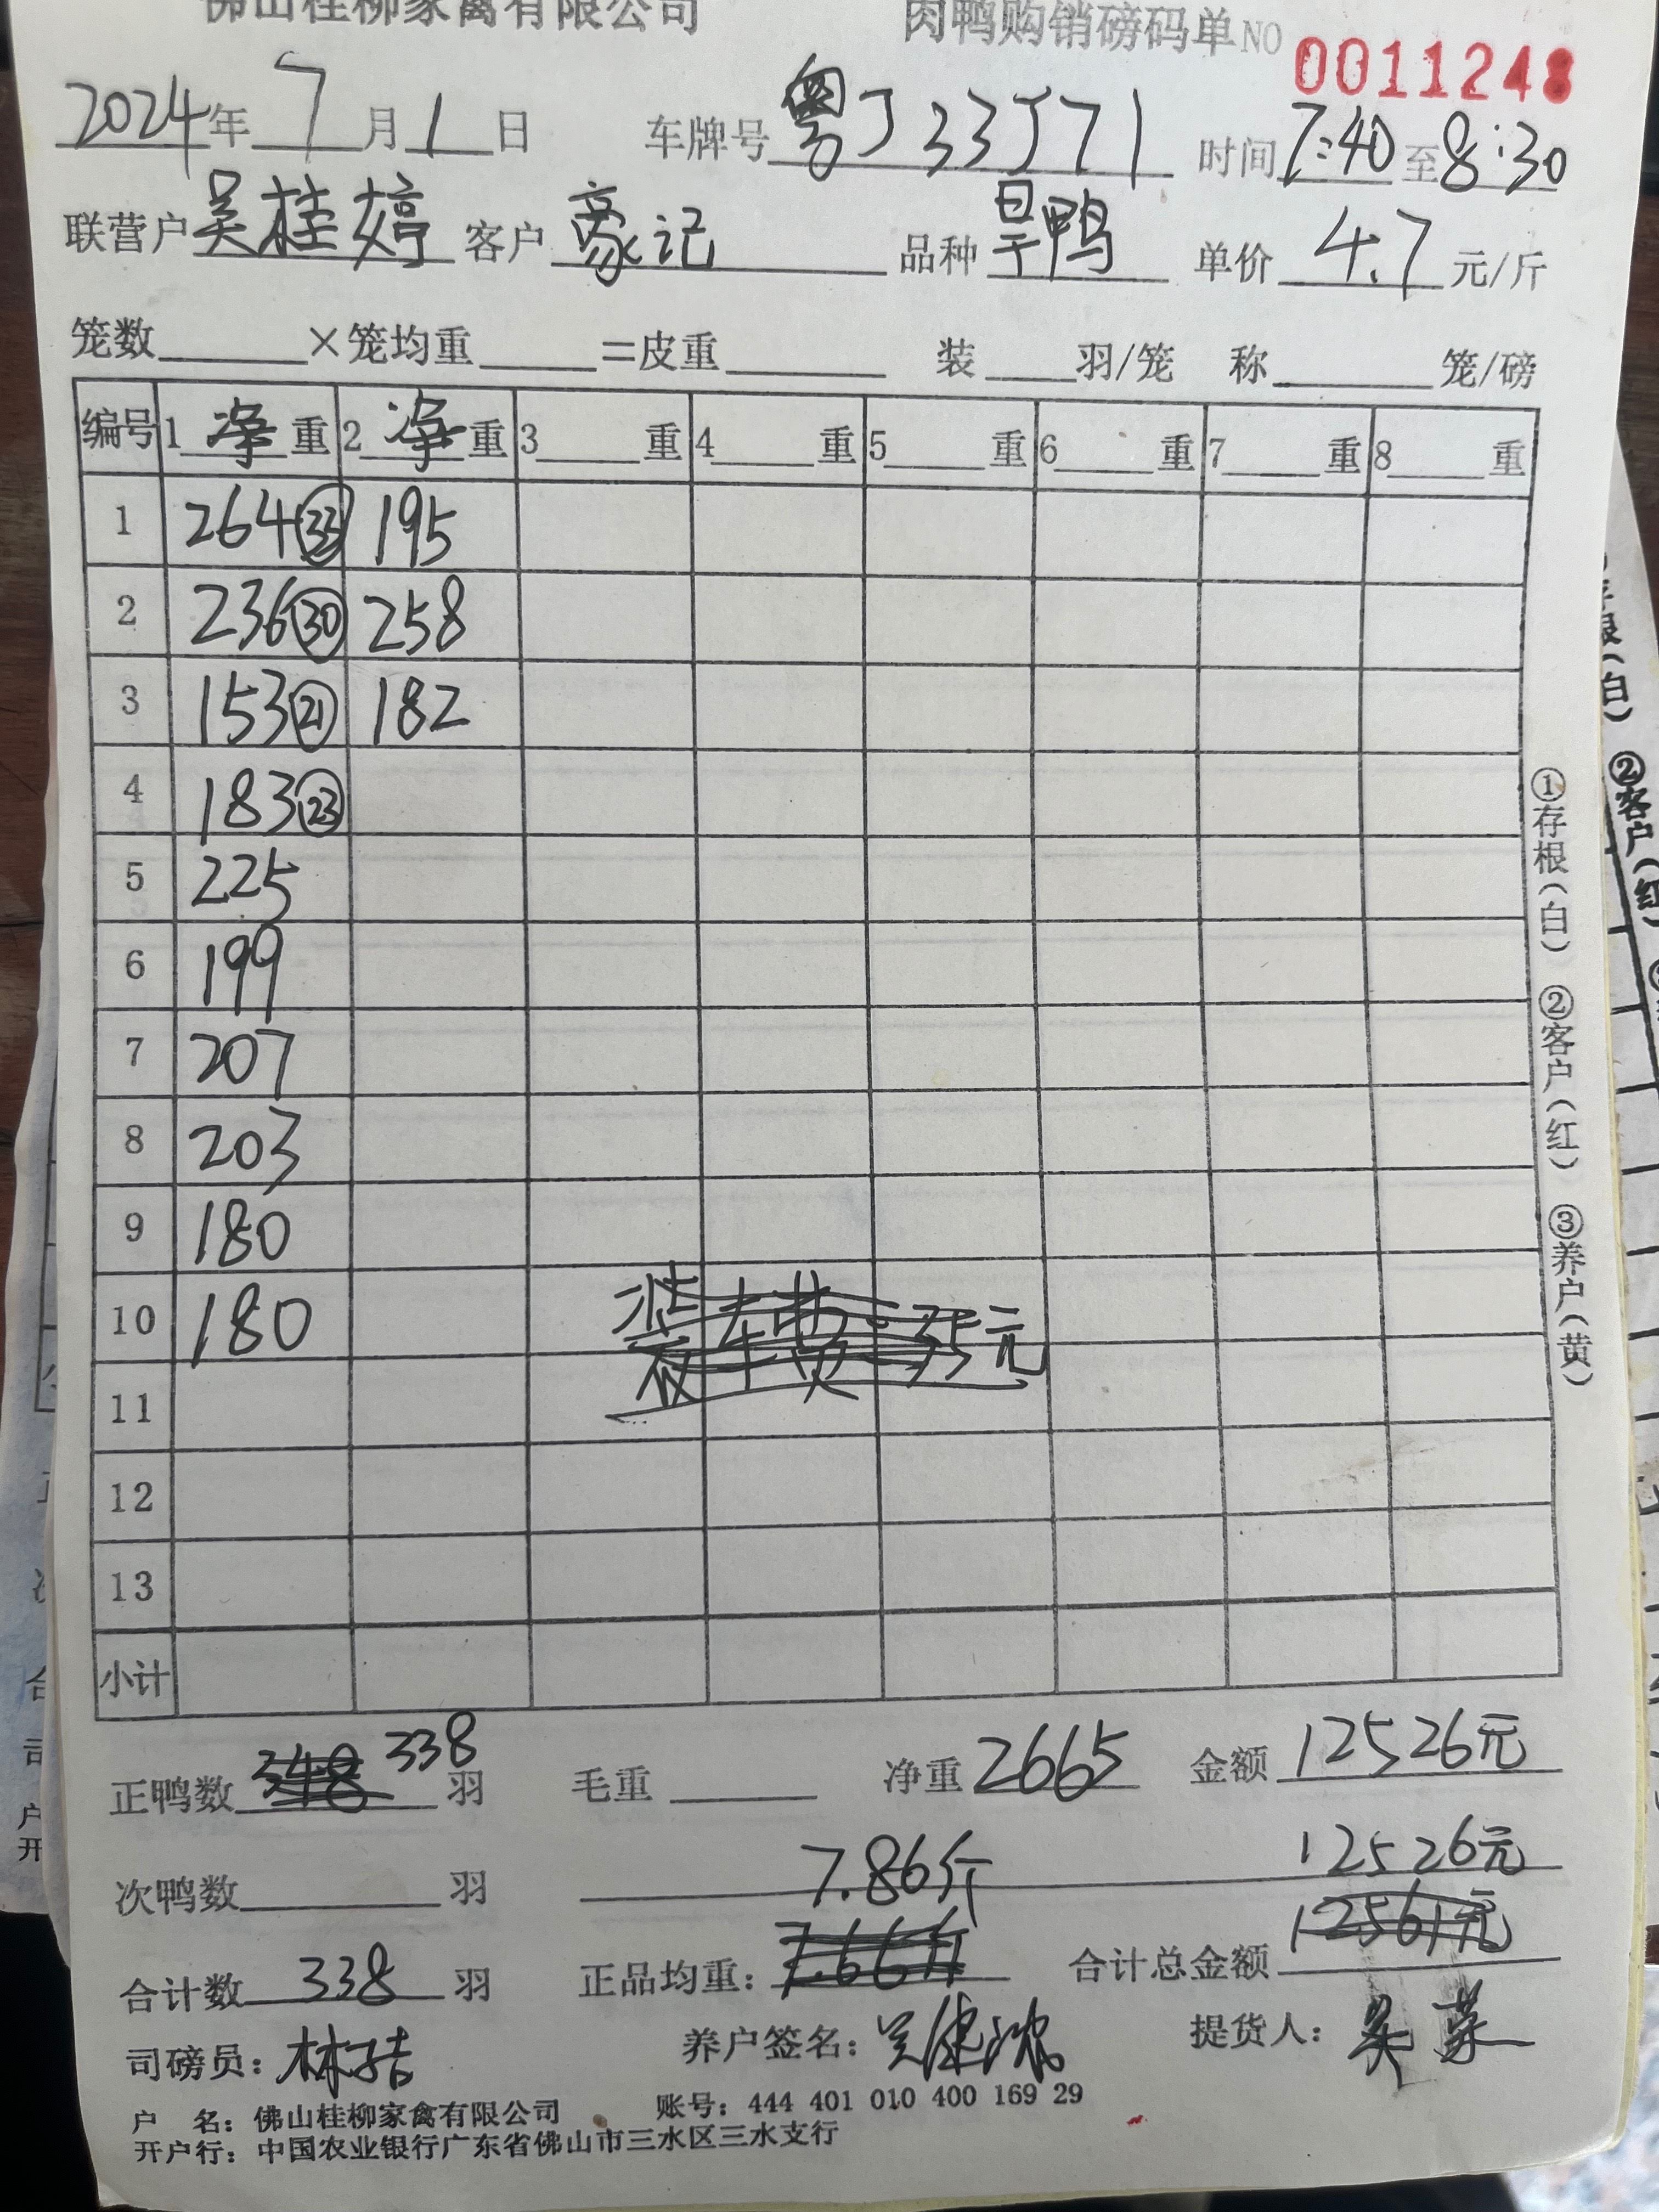 佛山桂柳家禽有限公司 肉鸭购销磅码单 NO 0011248
2024年 7 月 1 日 车牌号 粤J33J71 时间 7:40 至 8:30
联营户 吴桂婷 客户 豪记 品种 旱鸭 单价 4.7 元/斤
笼数 ×笼均重 =皮重 装 羽/笼 称 笼/磅
编号 1 净 重 2 净 重 3 重 4 重 5 重 6 重 7 重 8 重
1 264 ㉝ 195
2 236 ㉚ 258
3 153 ㉑ 182
4 183 ㉓
5 225
6 199
7 207
8 203
9 180
10 180
装车费:35元
11
12
13
小计
正鸭数 348 338 羽 毛重 净重 2665 金额 12526元
次鸭数 羽 7.86斤 12526元
12561元
合计数 338 羽 正品均重: 7.66斤 合计总金额
司磅员: 养户签名: 提货人:
户 名: 佛山桂柳家禽有限公司 账号: 444 401 010 400 169 29
开户行: 中国农业银行广东省佛山市三水区三水支行
①存根(白) ②客户(红) ③养户(黄)
②客户(红)